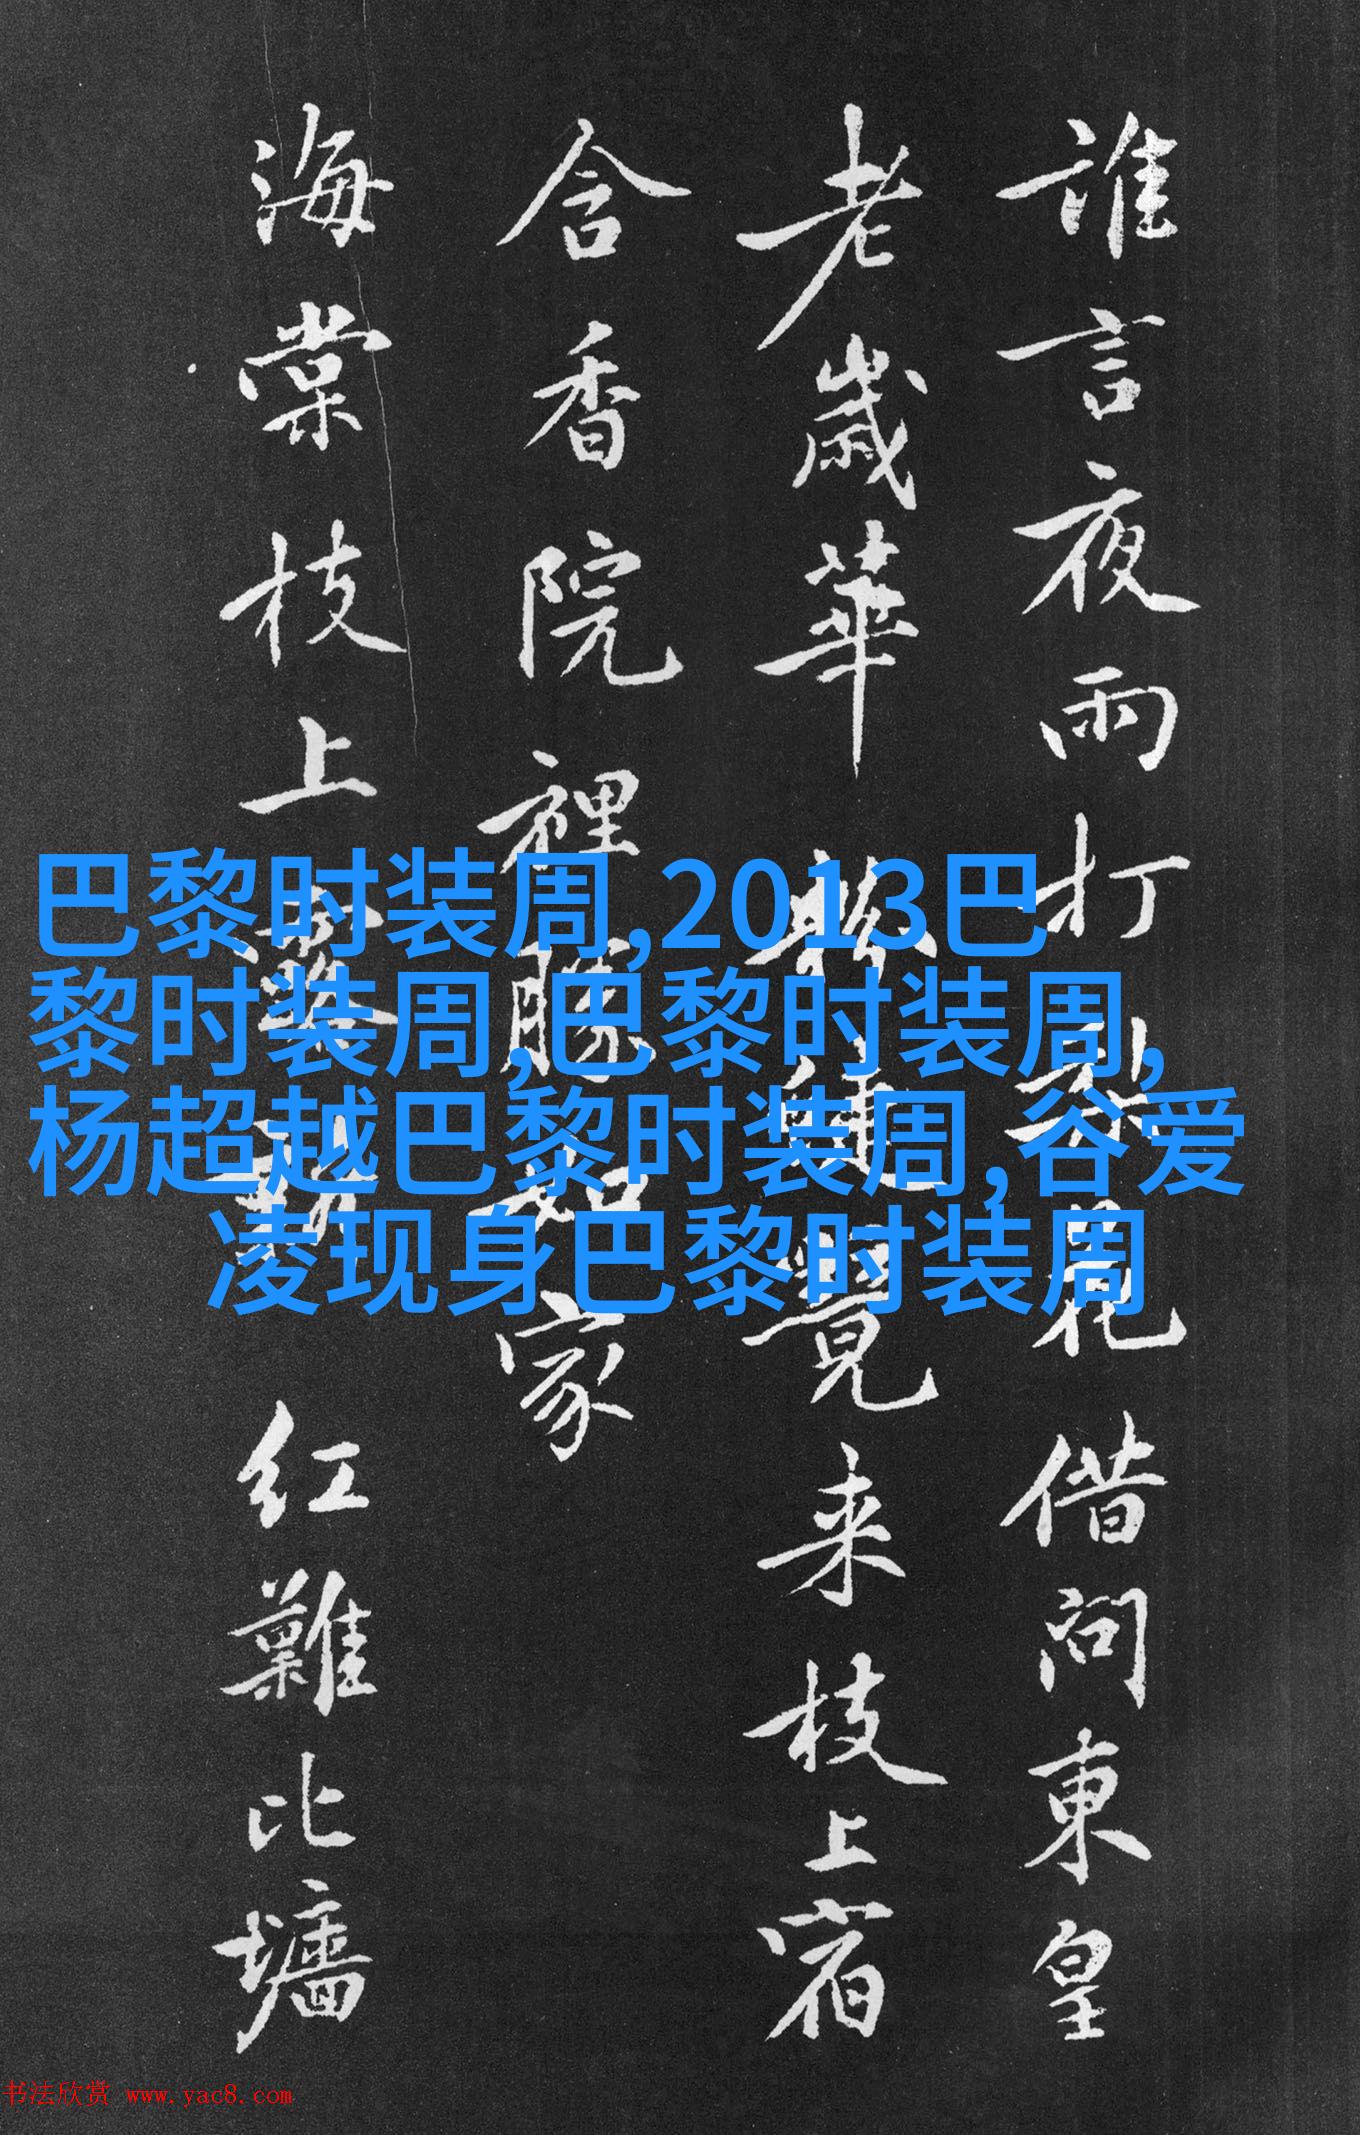 誰言夜雨打花借問東皇
老歲華覺来枝上宿
含香院裡勝如家
海棠枝上红難比墻
巴黎时装周,2013巴
黎时装周,巴黎时装周,
杨超越巴黎时装周,谷爱
凌现身巴黎时装周
书法欣赏 www.yac8.com